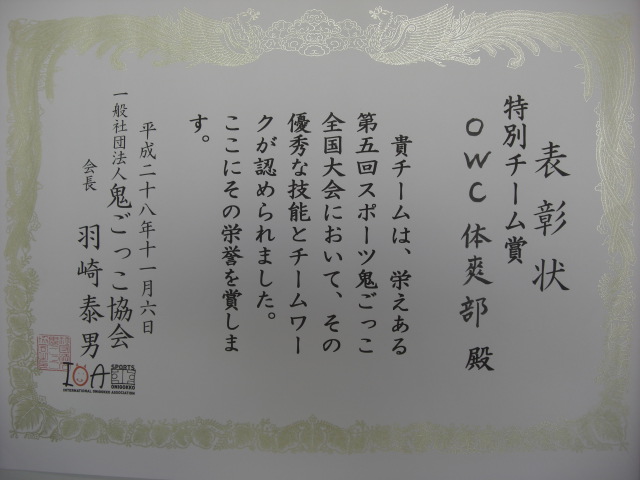 表彰状
特別チーム賞
OWC体爽部 殿
貴チームは、栄えある
第五回スポーツ鬼ごっこ
全国大会において、その
優秀な技能とチームワー
クが認められました。
ここにその栄誉を賞しま
す。
平成二十八年十一月六日
一般社団法人 鬼ごっこ協会
会長 羽崎泰男
IOA
SPORTS
ONIGOKKO
INTERNATIONAL ONIGOKKO ASSOCIATION